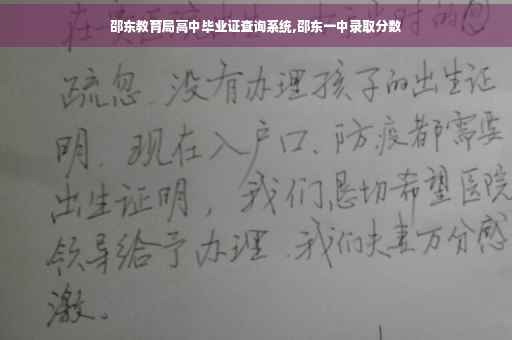 邵东教育局高中毕业证查询系统,邵东一中录取分数
疏忽、没有办理孩子的出生证
明、现在入户口、防疫都需要
出生证明，我们恳切希望医院
领导给予办理、我们夫妻万分感
激。